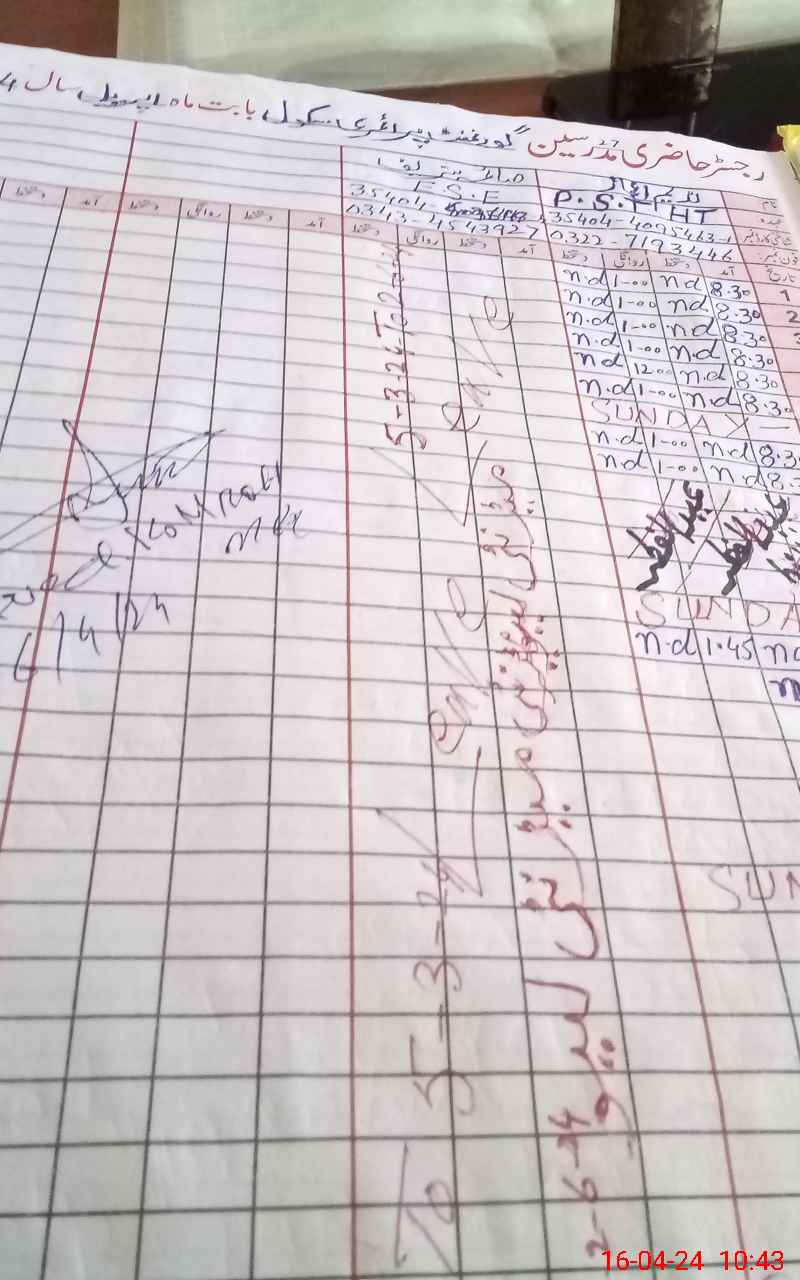 رجسٹر حاضری مدرسین گورنمنٹ پرائمری سکول بابت ماہ اپریل سال 4
P.S.T HT
E.S.E
35404-4095463-1
35404-
0322-7193446
0343-4543927
نام
عہدہ
تاریخ آمد دستخط روانگی دستخط آمد دستخط روانگی دستخط آمد دستخط روانگی دستخط آمد دستخط
1 8.30 n.d 1-00 n.d
2 8.30 n.d 1-00 n.d
3 8.30 n.d 1-00 n.d
8.30 n.d 1-00 n.d
8.30 n.d 12.00 n.d
8.30 n.d 1-00 n.d
SUNDAY
8.3 n.d 1-00 n.d
8. n.d 1-00 n.d
عید الفطر عید الفطر
SUNDA
n.d 1.45 n.d
n
SUN
5-3-24 To 2-6-24
Leave
میٹرنٹی لیو
Leave
میٹرنٹی لیو
5-3-24
To
2-6-24
6/4/24
16-04-24 10:43